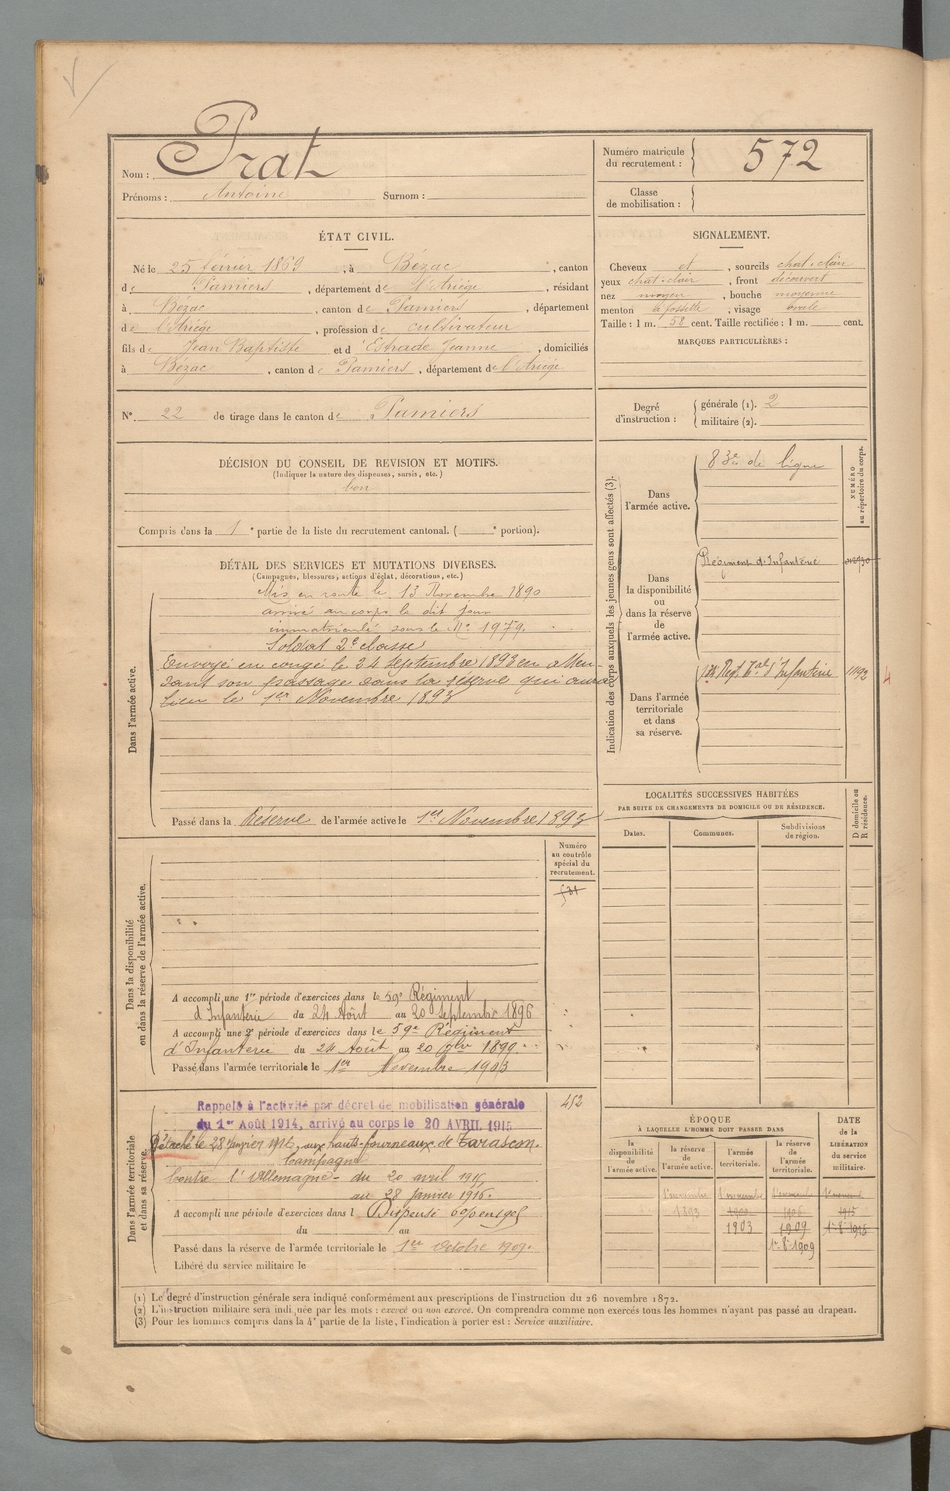 Nom : Prat
Prénoms : Antoine Surnom :
Numéro matricule du recrutement : 572
Classe de mobilisation :
ÉTAT CIVIL.
Né le 25 février 1869, à Bézac, canton
de Pamiers, département de l'Ariège, résidant
à Bézac, canton de Pamiers, département
de l'Ariège, profession de cultivateur
fils de Jean Baptiste et d'Estrade Jeanne, domiciliés
à Bézac, canton de Pamiers, département de l'Ariège
N° 22 de tirage dans le canton de Pamiers
SIGNALEMENT.
Cheveux et, sourcils chat. clair
yeux chat. clair, front découvert
nez moyen, bouche moyenne
menton à fossette, visage ovale
Taille : 1 m. 58 cent. Taille rectifiée : 1 m. cent.
MARQUES PARTICULIÈRES :
Degré d'instruction : générale (1). 2
militaire (2).
DÉCISION DU CONSEIL DE REVISION ET MOTIFS.
(Indiquer la nature des dispenses, sursis, etc.)
bon
Compris dans la 1e partie de la liste du recrutement cantonal. ( e portion).
DÉTAIL DES SERVICES ET MUTATIONS DIVERSES.
(Campagnes, blessures, actions d'éclat, décorations, etc.)
Dans l'armée active.
Mis en route le 13 Novembre 1890
arrivé au corps le dit jour
immatriculé sous le N° 1979.
Soldat 2e classe
Envoyé en congé le 24 Septembre 1893 en atten-
dant son passage dans la réserve qui aura
lieu le 1er Novembre 1893
Passé dans la Réserve de l'armée active le 1er Novembre 1893
Indication des corps auxquels les jeunes gens sont affectés (3).
NUMÉRO au répertoire du corps.
Dans l'armée active.
83e de ligne
Dans la disponibilité ou dans la réserve de l'armée active.
Régiment d'Infanterie
Dans l'armée territoriale et dans sa réserve.
Regt Tal d'Infanterie
LOCALITÉS SUCCESSIVES HABITÉES
PAR SUITE DE CHANGEMENTS DE DOMICILE OU DE RÉSIDENCE.
Dates. Communes. Subdivisions de région.
D domicile ou R résidence.
Dans la disponibilité ou dans la réserve de l'armée active.
Numéro au contrôle spécial du recrutement.
A accompli une 1re période d'exercices dans le 59e Régiment
d'Infanterie du 24 Août au 20 Septembre 1896
A accompli une 2e période d'exercices dans le 59e Régiment
d'Infanterie du 24 Août au 20 7bre 1899.
Passé dans l'armée territoriale le 1er Novembre 1903
Dans l'armée territoriale et dans sa réserve.
412
Rappelé à l'activité par décret de mobilisation générale
du 1er Août 1914, arrivé au corps le 20 AVRIL 1915
Détaché le 28 janvier 1916, aux hauts-fourneaux de Tarascon.
Campagne
Contre l'Allemagne - du 20 avril 1915
au 28 Janvier 1916.
A accompli une période d'exercices dans l Dispensé
du au
Passé dans la réserve de l'armée territoriale le 1er Octobre 1909.
Libéré du service militaire le
ÉPOQUE
À LAQUELLE L'HOMME DOIT PASSER DANS
la disponibilité de l'armée active.
la réserve de l'armée active.
l'armée territoriale.
la réserve de l'armée territoriale.
DATE de la LIBÉRATION du service militaire.
1893 1900 1906 1915
1903 1909
(1) Le degré d'instruction générale sera indiqué conformément aux prescriptions de l'instruction du 26 novembre 1872.
(2) L'instruction militaire sera indiquée par les mots : exercé ou non exercé. On comprendra comme non exercés tous les hommes n'ayant pas passé au drapeau.
(3) Pour les hommes compris dans la 4e partie de la liste, l'indication à porter est : Service auxiliaire.